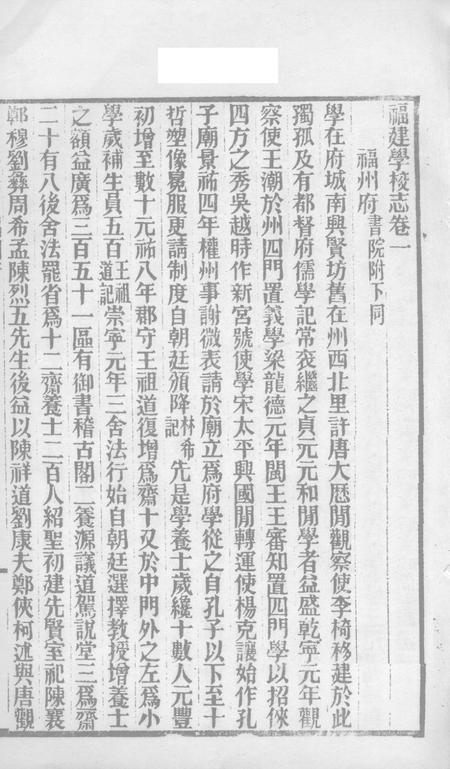 福建學校志卷一
福州府書院附下同
學在府城南興賢坊舊在州西北里許唐大厯閒觀察使李椅移建於此
獨孤及有都督府儒學記常衮繼之貞元元和閒學者益盛乾寧元年觀
察使王潮於州四門置義學梁龍德元年閩王王審知置四門學以招徠
四方之秀吳越時作新宮號使學宋太平興國閒轉運使楊克讓始作孔
子廟景祐四年權州事謝微表請於廟立為府學從之自孔子以下至十
哲塑像冕服更請制度自朝廷頒降林希記先是學養士歲纔十數人元豐
初增至數十元祐八年郡守王祖道復增為齋十又於中門外之左為小
學歲補生員五百王祖道記崇寧元年三舍法行始自朝廷選擇教授增養士
之額益廣為三百五十一區有御書稽古閣二養源議道駕說堂三為齋
二十有八後舍法罷省為十二齋養士二百人紹聖初建先賢室祀陳襄
鄭穆劉彝周希孟陳烈五先生後益以陳祥道劉康夫鄭俠柯述與唐觀